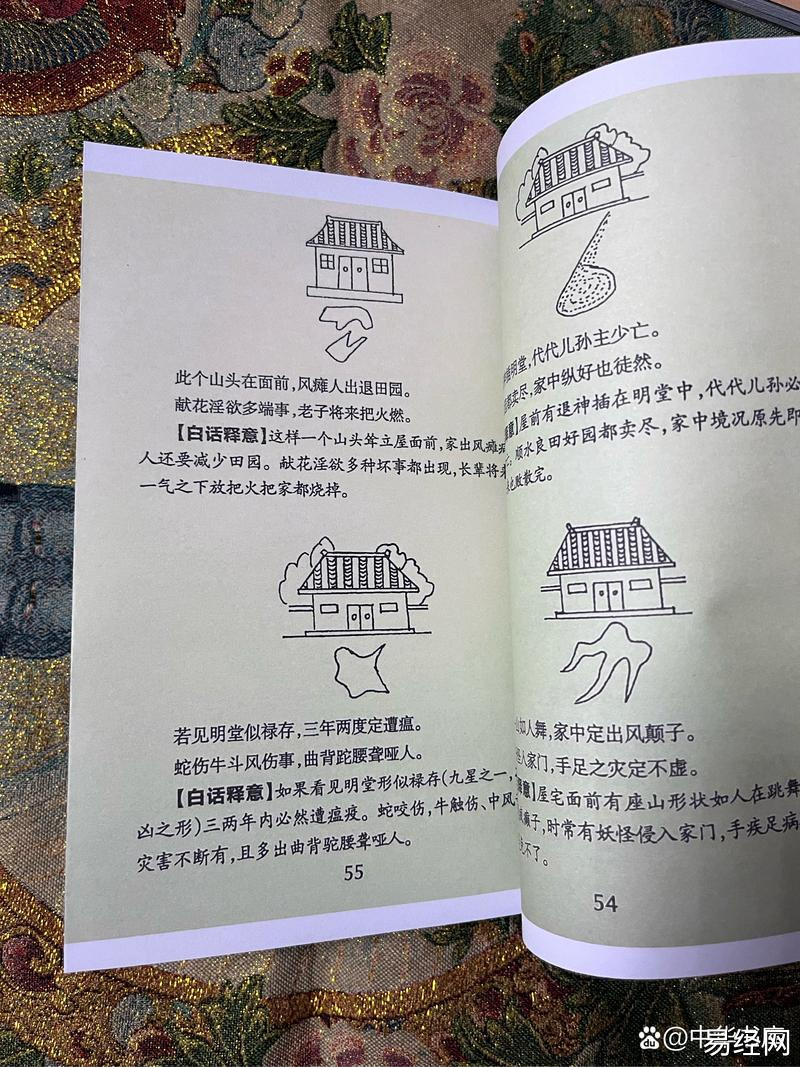 此个山头在面前,风瘫人出退田园。
献花淫欲多端事,老子将来把火燃。
【白话释意】这样一个山头耸立屋面前,家出风瘫
人还要减少田园。献花淫欲多种坏事都出现,长辈将
一气之下放把火把家都烧掉。
若见明堂似禄存,三年两度定遭瘟。
蛇伤牛斗风伤事,曲背跎腰聋哑人。
【白话释意】如果看见明堂形似禄存(九星之一,
凶之形)三两年内必然遭瘟疫。蛇咬伤,牛触伤、中风
灾害不断有,且多出曲背驼腰聋哑人。
55
明堂,代代儿孙主少亡。
卖尽,家中纵好也徒然。
意】屋前有退神插在明堂中,代代儿孙必
顺水良田好园都卖尽,家中境况原先即
也败散完。
如人舞,家中定出风颠子。
人家门,手足之灾定不虚。
意】屋宅面前有座山形状如人在跳舞
癫子,时常有妖怪侵入家门,手疾足病
不了。
54
du @中华
易经网